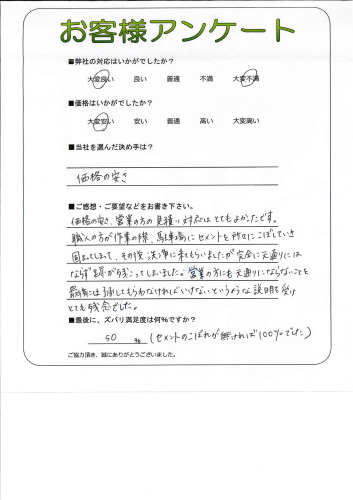 お客様アンケート
■弊社の対応はいかがでしたか?
大変良い 良い 普通 不満 大変不満
■価格はいかがでしたか?
大変安い 安い 普通 高い 大変高い
■当社を選んだ決め手は?
価格の安さ
■ご感想・ご要望などをお書き下さい。
価格の安さ、営業の方の見積り対応はとてもよかったです。
職人の方が作業の際、駐車場にセメントを所々にこぼしていき
固まってしまって、その後洗浄に来てもらいましたが完全に元通りには
ならず跡が残ってしまいました。営業の方にも元通りにならないことを
最初に了承してもらわなければいけないというような説明を受け
とても残念でした。
■最後に、ズバリ満足度は何%ですか?
50 % (セメントのこぼれが無ければ100%でした)
ご協力頂き、誠にありがとうございました。